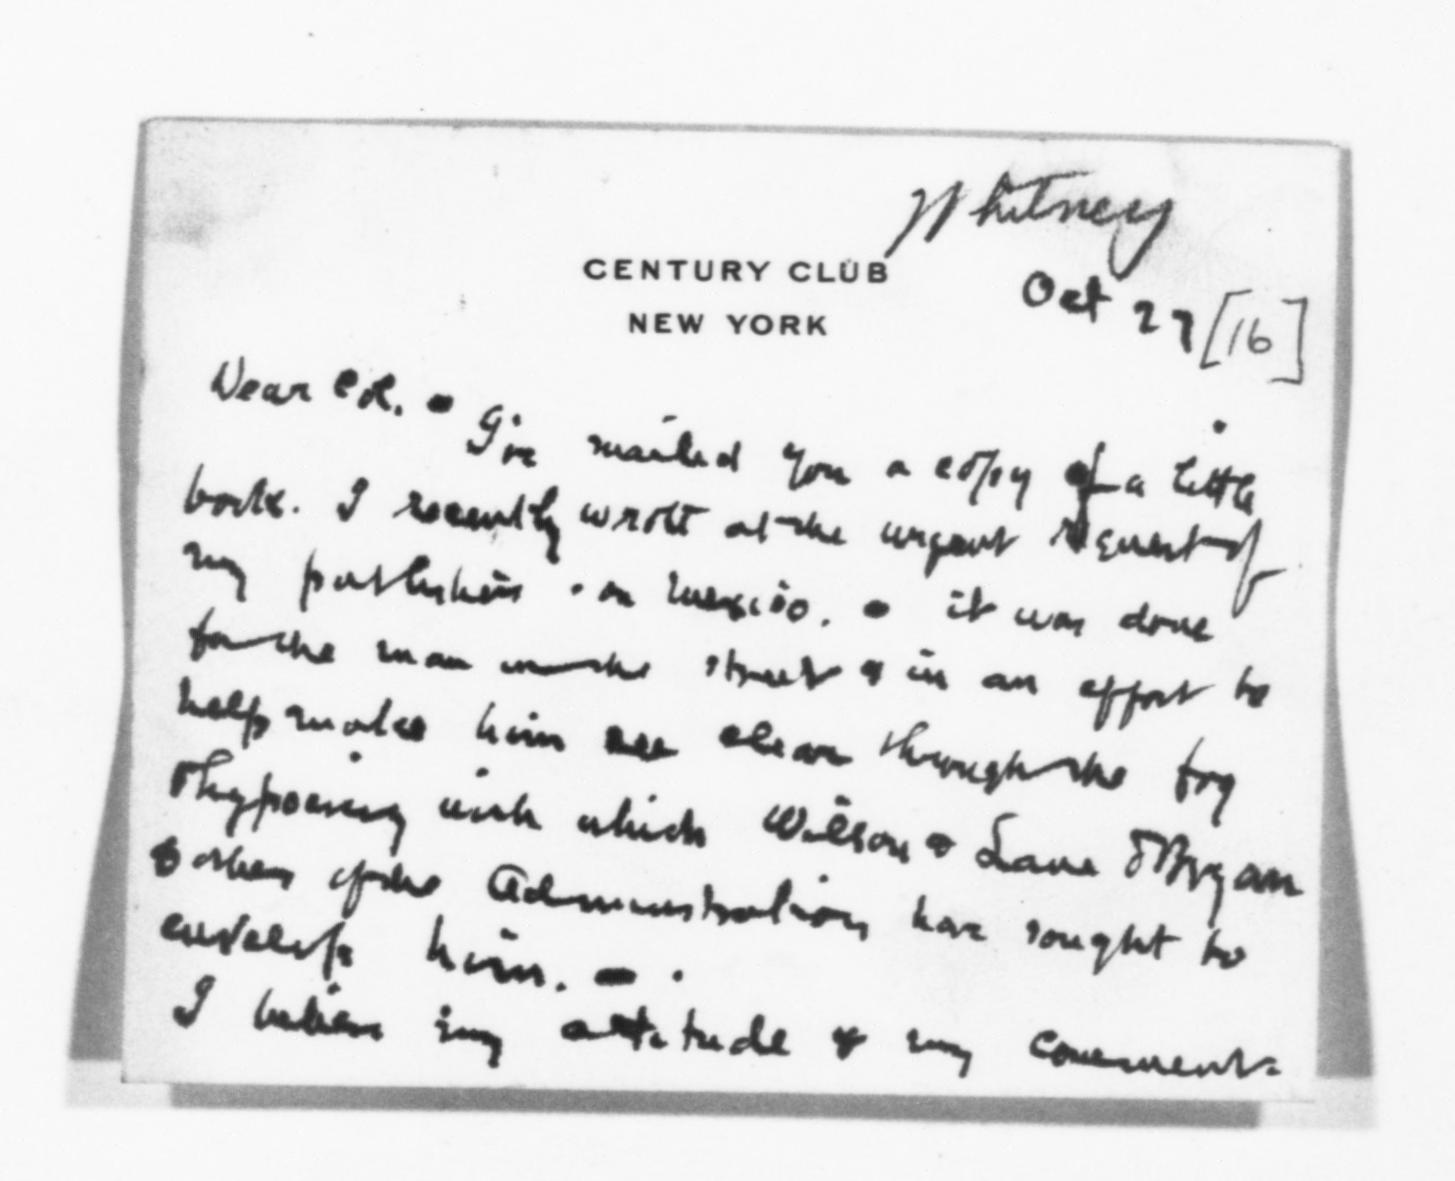 Whitney
CENTURY CLUB
NEW YORK
Oct 27 [16]
Dear Col. - I've mailed you a copy of a little
book. I recently wrote at the urgent request of
my publishers - on Mexico. - it was done
for the man in the street & in an effort to
help make him see clear through the fog
& hypocrisy with which Wilson & Lane & Bryan
& others of the Administration have sought to
envelope him. -
I believe my attitude & my comments